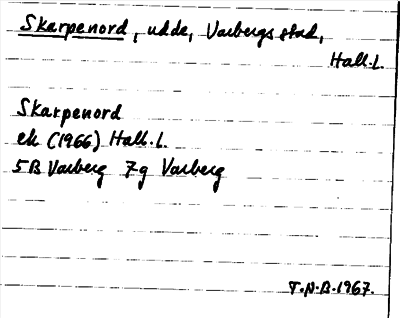 Skarpenord, udde, Varbergs stad,
Hall.l.
Skarpenord
ek (1966) Hall.l.
5B Varberg 7g Varberg
T.N.B.1967.